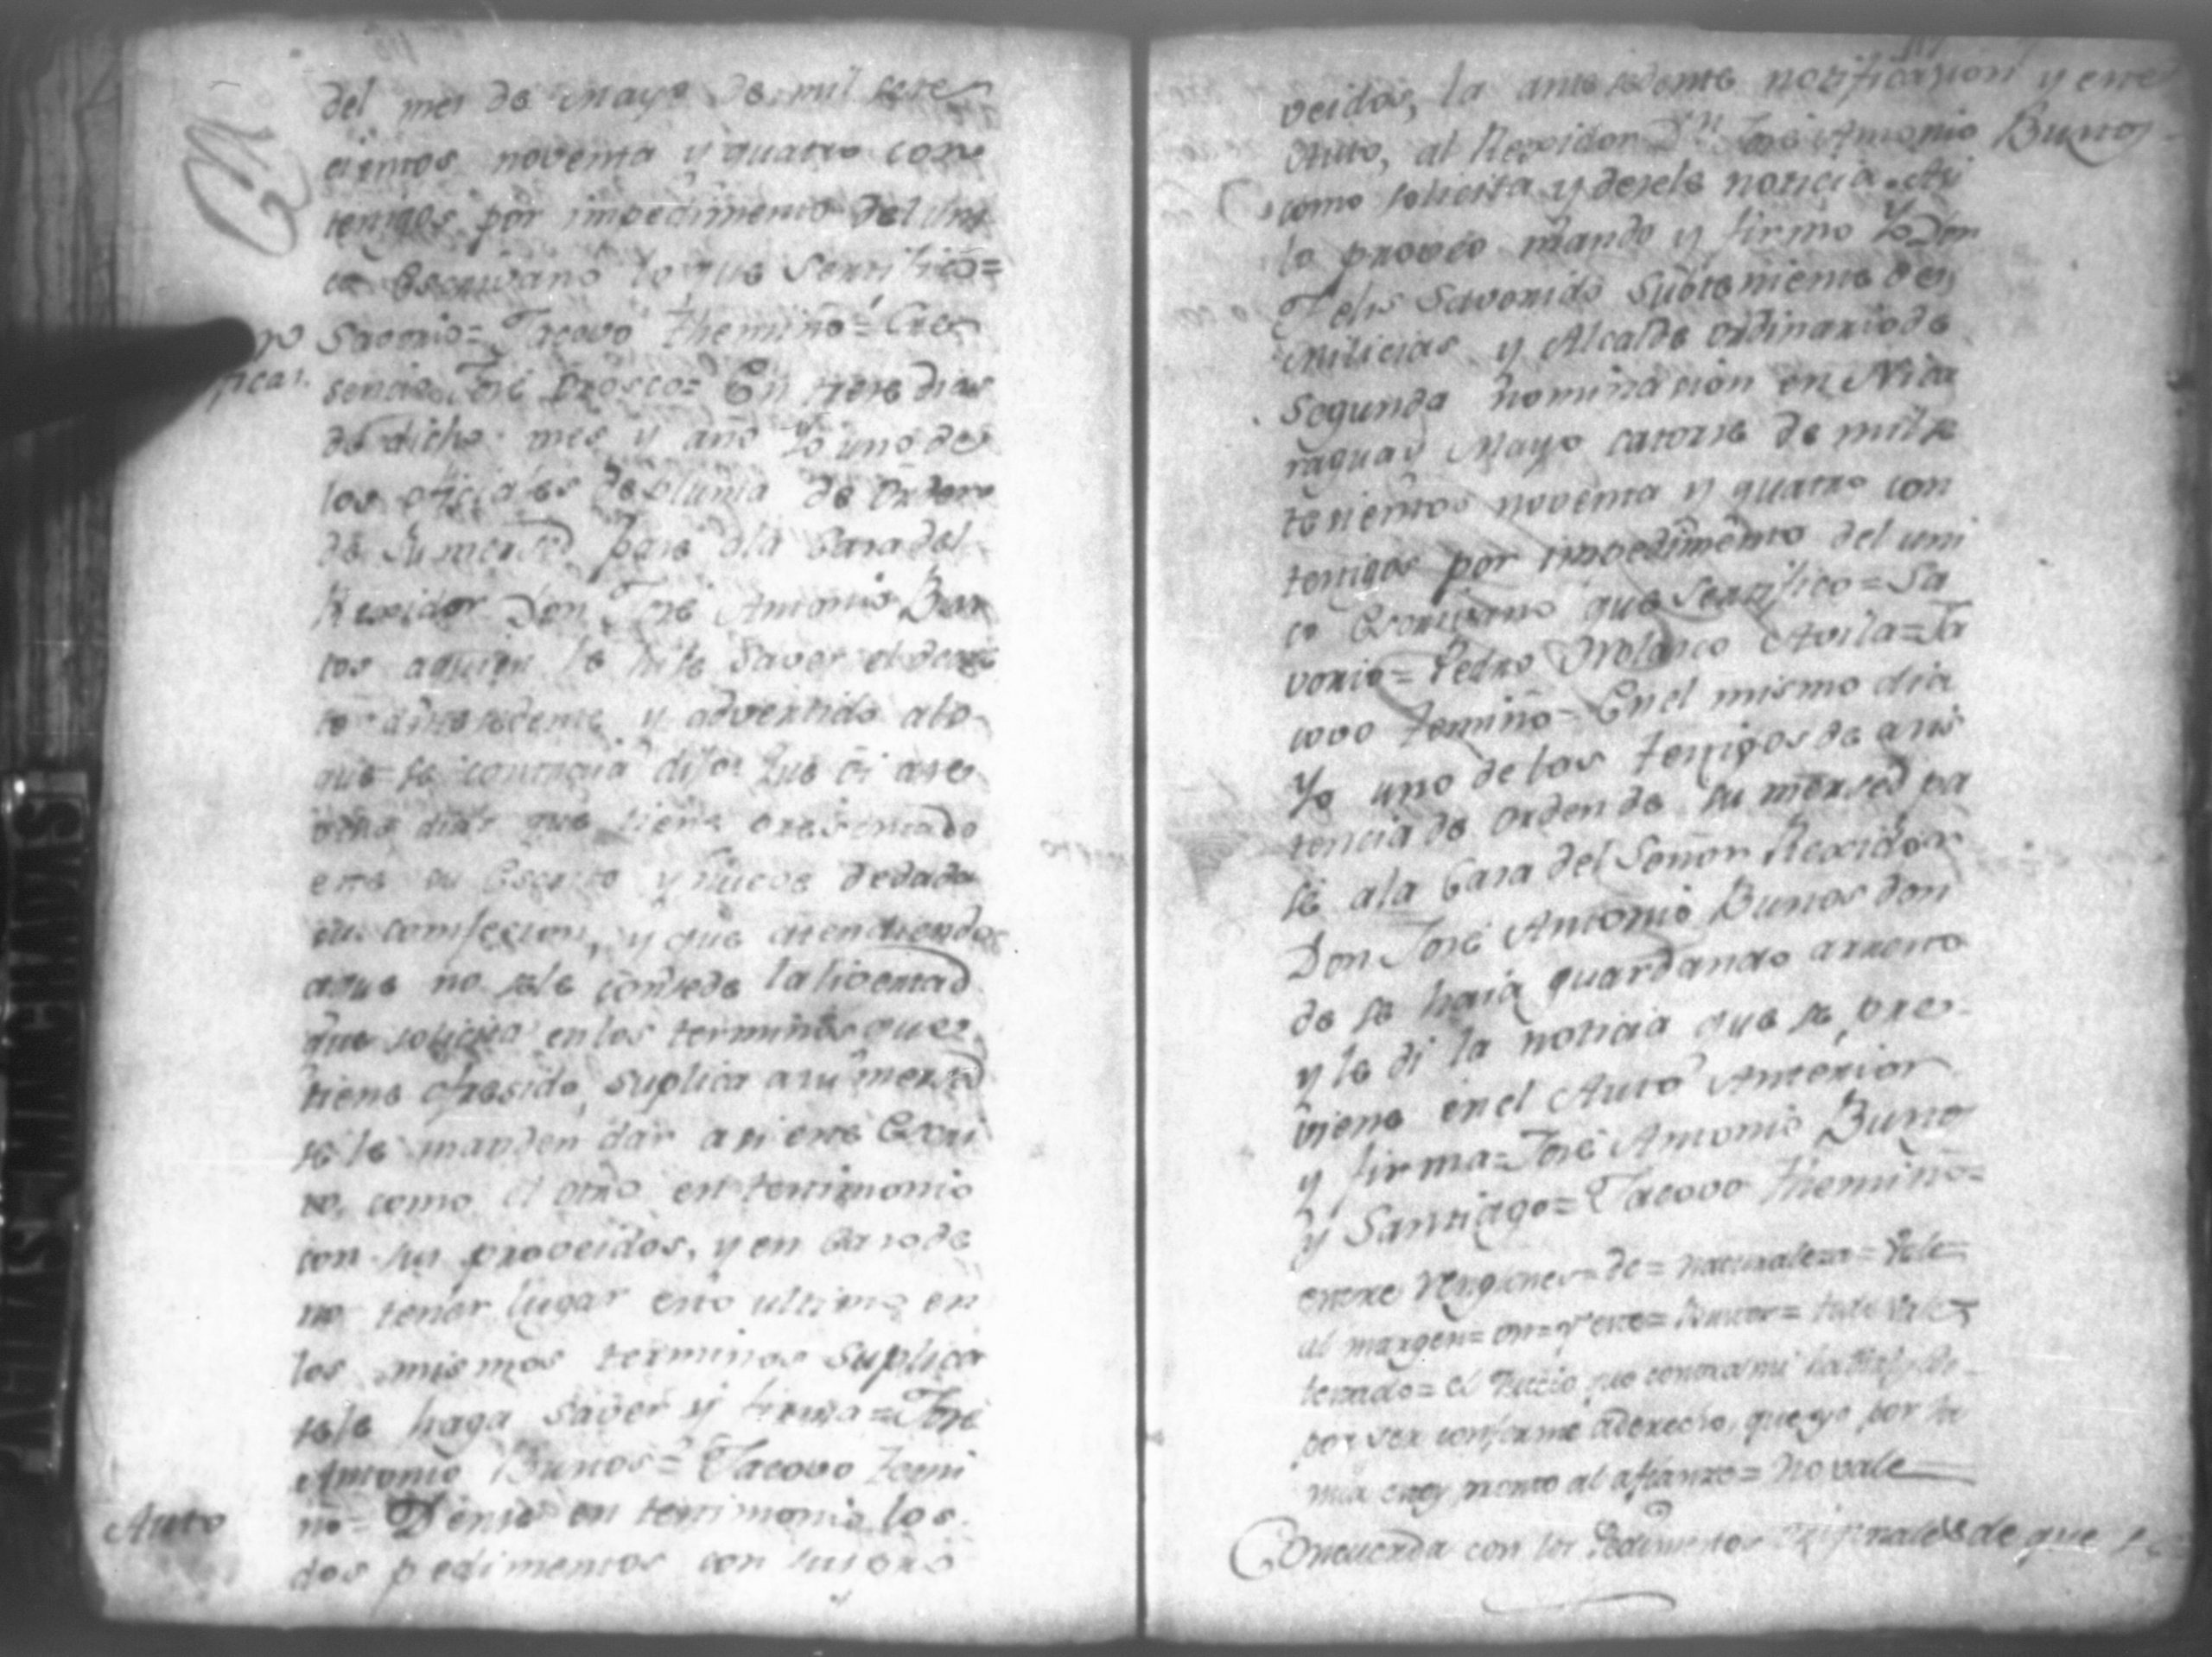 del mes de Mayo de mil sete
cientos noventa y quatro con
testigos por impedimento del uni
co Escrivano lo que Sertifico=
Savorio= Jacovo Themiño= Cre
sencio José Orosco= En trese dias
de dicho mes y año Yo uno de
los oficiales de pluma de orden
de su mersed, pase ala Casa del
Rexidor Don José Antonio Bus
tos aquien le hise Saver el decre
to antesedente y advertido alo
que se contenia dijo: Que oi ase
ocho dias que tiene presentado
este su Escrito y nueve de dada
su confesion, y que atendiendo
aque no sele consede la livertad
que solicita en los terminos que
tiene ofresido, suplica asu mersed
se le manden dar asi este Escri
to, como el otro en testimonio
con sus proveidos, y en Caso de
no tener lugar esto ultimo en
los mismos terminos suplica
sele haga saver y firma= José
Antonio Bustos= Jacovo Temi
Auto
ño= Dense en testimonio los
dos pedimentos con sus pro
veidos, la antesedente notificasion y este
Auto, al Rexidor Dn José Antonio Bustos
como solicita y desele noticia. Asi
lo proveo mando y firmo Yo Don
Felis Savorido Subteniente de
Milicias y Alcalde ordinario de
Segunda nominasion en Nica
ragua y Mayo catorse de mil se
tesientos noventa y quatro con
testigos por impedimento del uni
co Escrivano que Sertifico= Sa
vorio= Pedro Polanco Avila= Ja
covo Temiño= En el mismo dia
Yo uno de los testigos de asis
tencia de orden de su mersed pa
sé ala Casa del Señor Rexidor
Don José Antonio Bustos don
de se haia guardando arresto
y le di la noticia que se pre
viene en el Auto Anterior
y firma= José Antonio Bustos
y Santiago= Jacovo Themiño=
entre renglones= de= naturaleza= Vale=
al margen= on= y este= todo vale=
testado= el que contra mi
por ser conforme aderecho, que yo por
mia estoy pronto al afianzo= No vale
Concuerda con los Pedimentos originales de que